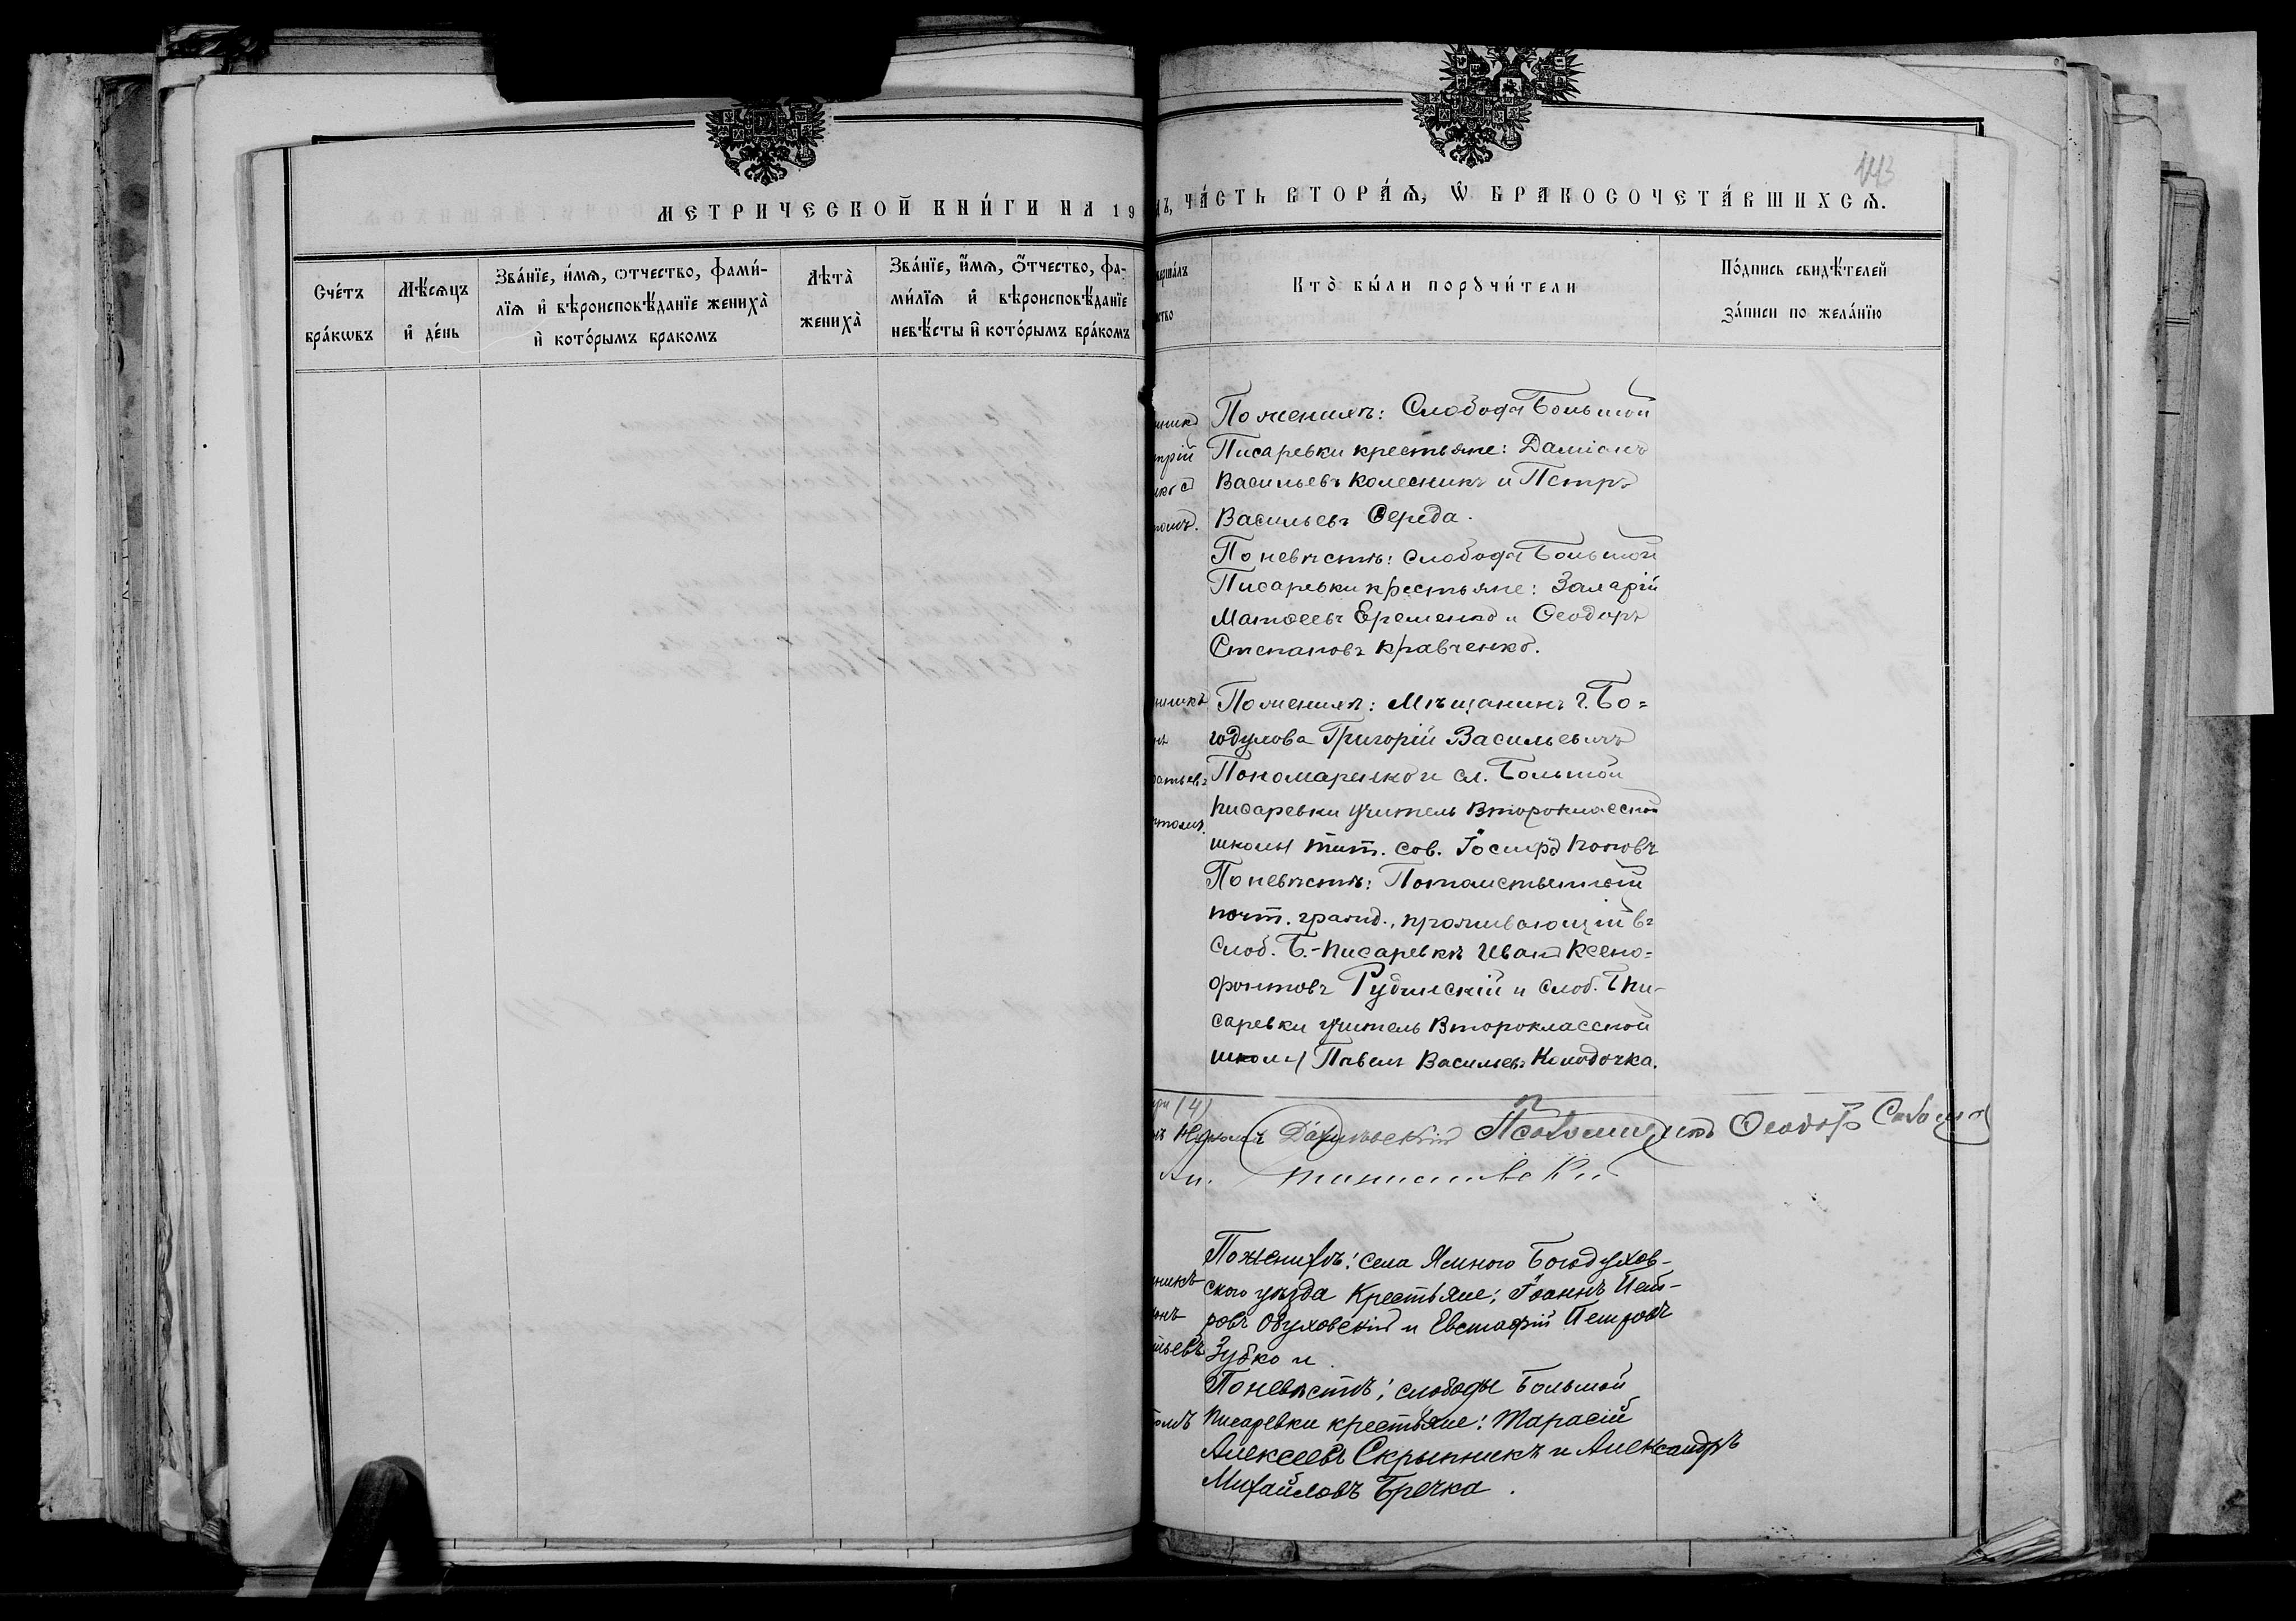 МЕТРИЧЕСКОЙ КНИ́ГИ НА 19
Сче́тъ бра́кѡвъ
Мѣ́сѧцъ и҆ де́нь
Зва́нїе, и́мѧ, ѻтчество, фами́-
лїѧ и҆ вѣроисповѣ́данїе жениха̀
и҆ кото́рымъ бракомъ
Лѣта̀ жениха̀
Зва́нїе, и҆́мѧ, ѻ҆́тчество, фа-
ми́лїѧ и҆ вѣроисповѣ́данїе
невѣ́сты и҆ кото́рымъ бра́комъ
443
ЧА́СТЬ ВТОРА́Ѧ, Ѡ҆ БРАКОСОЧЕТА́ВШИХСѦ.
Кто̀ бы́ли порꙋчи́тели
По́дпись свидѣ́телей
за́писи по жела́нїю
По женихѣ: Слободы Большой
Писаревки крестьяне: Даміанъ
Васильевъ Колесникъ и Петръ
Васильевъ Середа.
По невѣстѣ: слободы Большой
Писаревки крестьяне: Захарій
Матѳеевъ Еременко и Ѳеодоръ
Степановъ Кравченко.
По женихѣ: Мѣщанинъ г. Бо=
годухова Григорій Васильевичъ
Пономаренко и сл. Большой
Писаревки учитель Второклассной
школы тит. сов. Іосифъ Поповъ
По невѣстѣ: Потомственный
почт. гражд., проживающій въ
Слоб. Б.-Писаревкѣ Иванъ Ксено=
фонтовъ Рубинскій и слоб. Б Пи-
саревки учитель Второклассной
школы Павелъ Васильевъ Колодочка.
Ѳеодоръ
По женихѣ: села Ямного Богодухов-
ского уѣзда Крестьяне: Іоаннъ Пет-
ровъ Обуховскій и Евстафій Петровъ
Зубко и
По невѣстѣ: слободы Большой
Писаревки крестьяне: Тарасій
Алексеевъ Скрыпникъ и Александръ
Михайловъ Бречка.